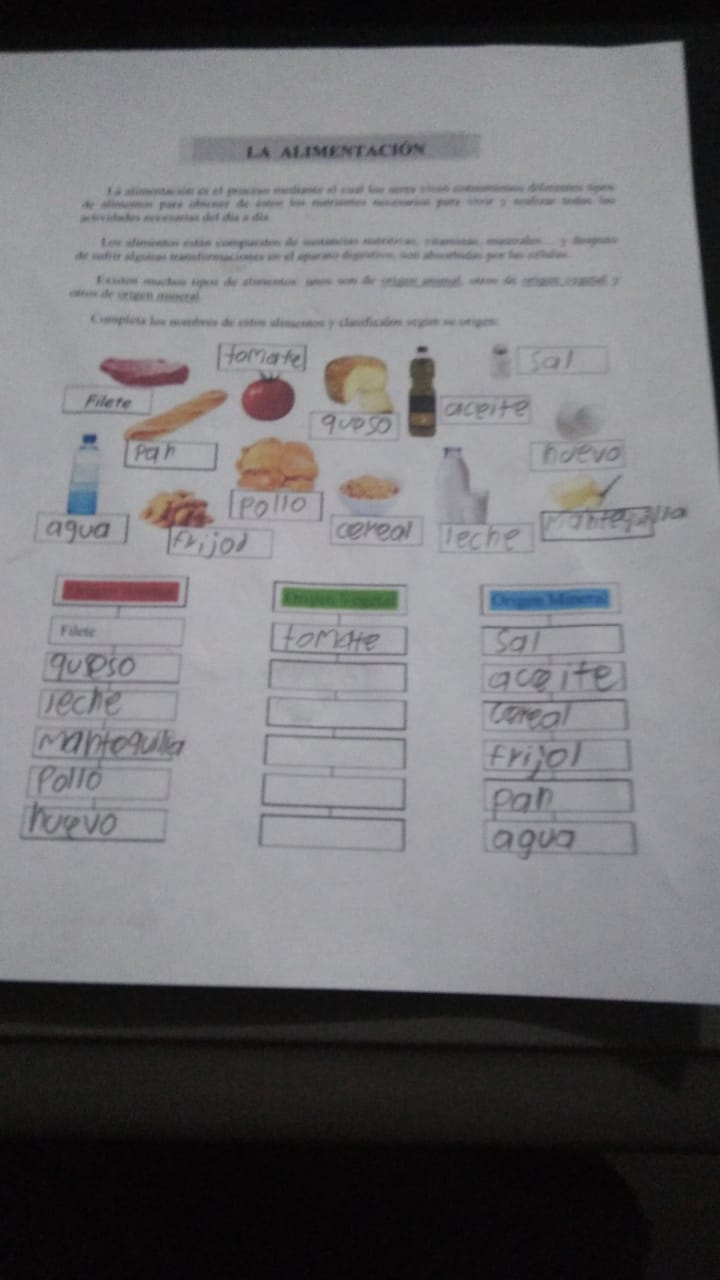 LA ALIMENTACIÓN
La alimentación es el proceso mediante el cual los seres vivos consumimos diferentes tipos
de alimentos para obtener de estos los nutrientes necesarios para vivir y realizar todas las
actividades necesarias del día a día.
Los alimentos están compuestos de sustancias nutritivas, vitaminas, minerales... y después
de sufrir algunas transformaciones en el aparato digestivo, son absorbidas por las células.
Existen muchos tipos de alimentos: unos son de origen animal, otros de origen vegetal y
otros de origen mineral.
Completa los nombres de estos alimentos y clasifícalos según su origen:
tomate
sal
Filete
queso
aceite
pan
huevo
agua
frijol
pollo
cereal
leche
Mantequilla
Origen Animal
Origen Vegetal
Origen Mineral
Filete
tomate
sal
queso
aceite
leche
cereal
mantequilla
frijol
pollo
pan
huevo
agua